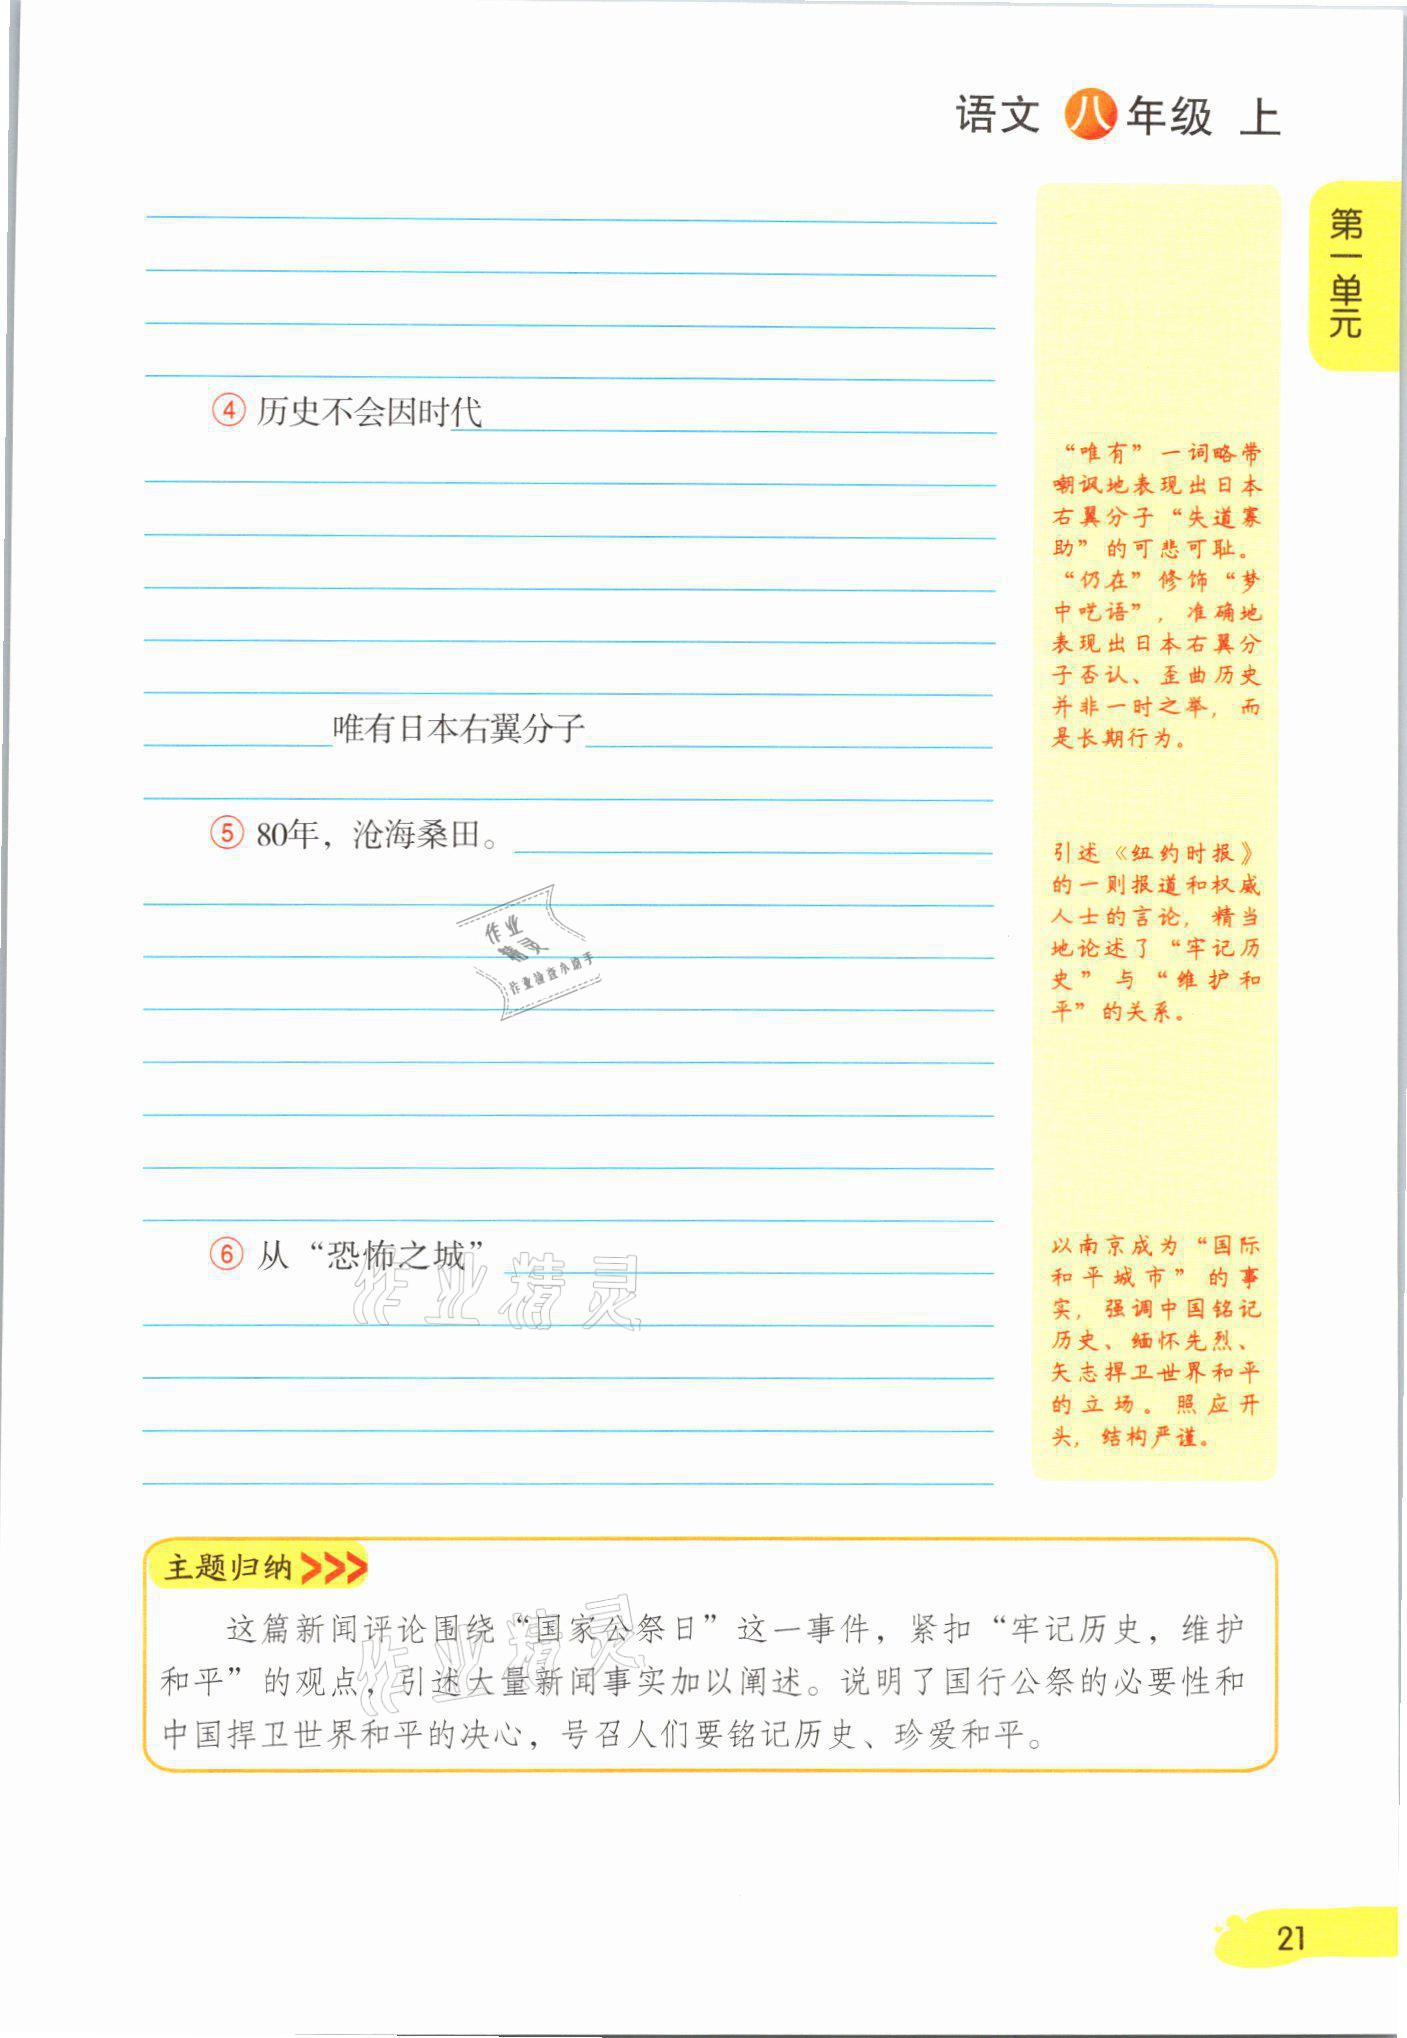 语文 八 年级 上
第一单元
④ 历史不会因时代
唯有日本右翼分子
⑤ 80年，沧海桑田。
⑥ 从“恐怖之城”
“唯有”一词略带
嘲讽地表现出日本
右翼分子“失道寡
助”的可悲可耻。
“仍在”修饰“梦
中呓语”，准确地
表现出日本右翼分
子否认、歪曲历史
并非一时之举，而
是长期行为。
引述《纽约时报》
的一则报道和权威
人士的言论，精当
地论述了“牢记历
史”与“维护和
平”的关系。
以南京成为“国际
和平城市”的事
实，强调中国铭记
历史、缅怀先烈、
矢志捍卫世界和平
的立场。照应开
头，结构严谨。
作业
精灵
作业检查小助手
作业精灵
主题归纳
这篇新闻评论围绕“国家公祭日”这一事件，紧扣“牢记历史，维护
和平”的观点，引述大量新闻事实加以阐述。说明了国行公祭的必要性和
中国捍卫世界和平的决心，号召人们要铭记历史、珍爱和平。
作业精灵
21